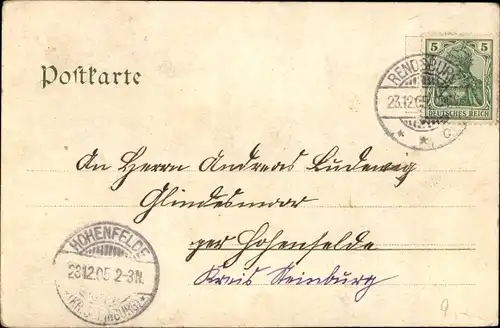 Postkarte
5 5
DEUTSCHES REICH
RENDSBURG
23.12.05
* * C
An Herrn Andreas Ludewig
Glindesmoor
per Hohenfelde
Kreis Steinburg
HOHENFELDE
23.12.05 2-3N.